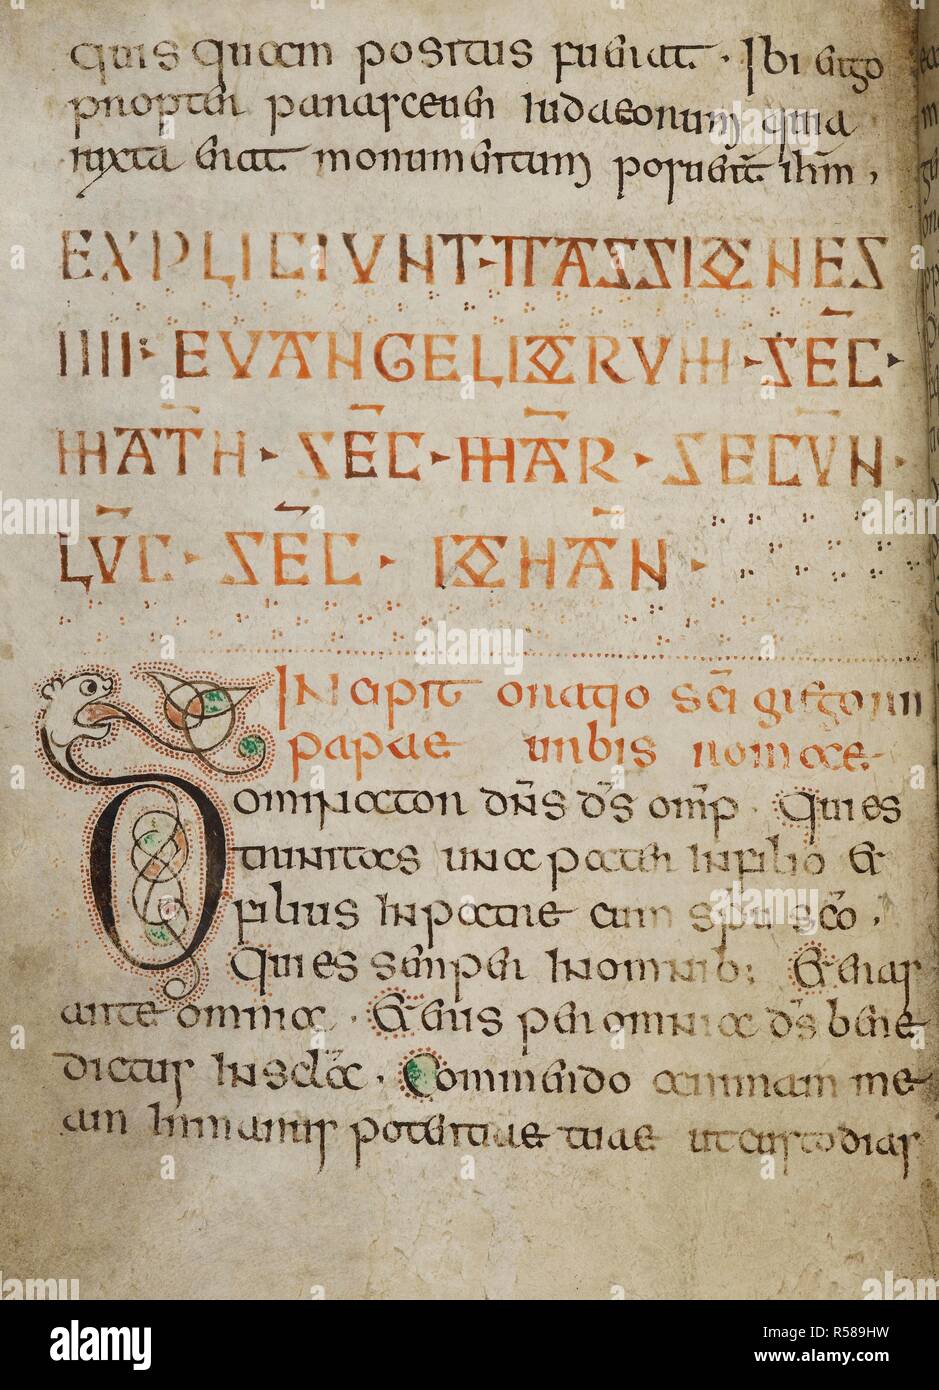 quisquam positus fuerat · Ibi ergo
propter parasceuen iudaeorum quia
iuxta erat monumentum posuer̄t ih̄m,
EXPLICIUNT · PASSIONES
IIII · EUANGELIORUM · SEC̄ ·
MATH̄ · SEC̄ · MAR̄ · SECUN ·
LUC̄ · SEC̄ · IOHAN̄ ·
INcipit oratio sc̄i gregorii
papae urbis romae·
Dominator dn̄s ds̄ om̄p · Qui es
trinitas una pater in filio et
filius in patre cum spu sc̄o ·
Qui es semper in omnib; Et eras
ante omnia · Et eris per omnia ds̄ bene
dictus in scl̄a · Commendo animam me
am in manus potentiae tuae ut custodias
alamy
Image ID: R589HW
www.alamy.com